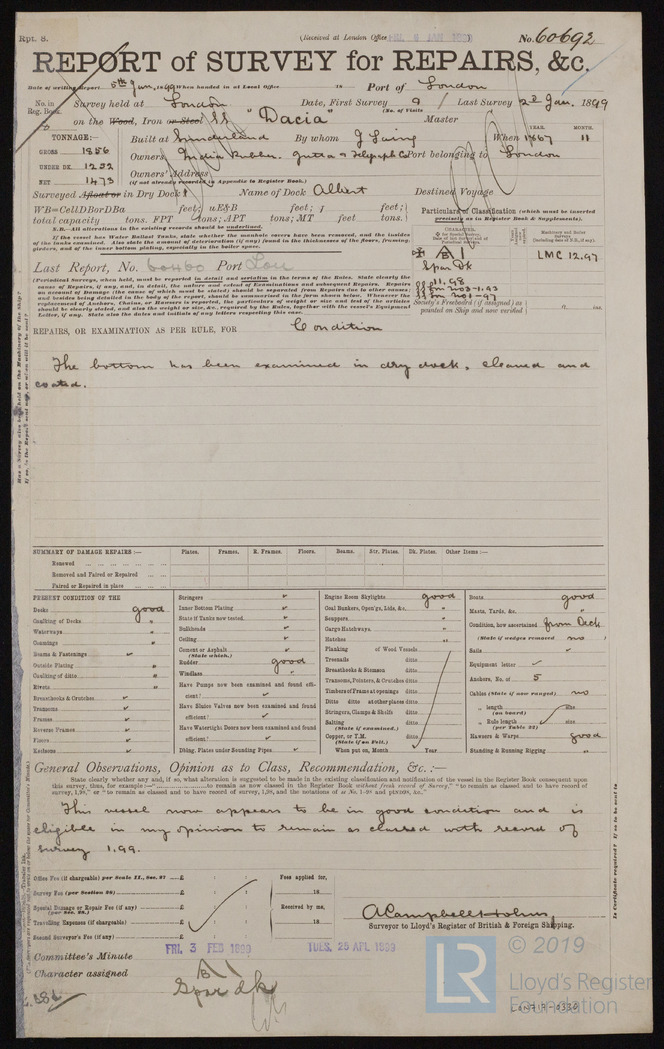 Rpt. 8.
(Received at London Office
No. 60692
REPORT of SURVEY for REPAIRS, &c.
Date of writing Report 5th Jan. 1899 When handed in at Local Office 18 Port of London
No. in Reg. Book.
Survey held at London Date, First Survey Last Survey 2d Jan. 1899
(No. of Visits
on the Wood, Iron or Steel SS "Dacia" Master
TONNAGE:—
GROSS 1856
UNDER DK. 1252
NET 1473
Built at Sunderland By whom J Laing When 1867 11
YEAR. MONTH.
Owners India Rubber. Gutta & Telegraph Co Port belonging to London
Owners' Address
(if not already recorded in Appendix to Register Book.)
Surveyed Afloat or in Dry Dock Name of Dock Albert Destined Voyage
WB=CellDBorDBa feet; uE&B feet; f feet;
total capacity tons. FPT tons; APT tons; MT feet tons.
N.B.—All alterations in the existing records should be underlined.
Particulars of Classification (which must be inserted precisely as in Register Book & Supplements).
If the vessel has Water Ballast Tanks, state whether the manhole covers have been removed, and the insides of the tanks examined. Also state the amount of deterioration (if any) found in the thicknesses of the floors, framing, girders, and of the inner bottom plating, especially in the boiler space.
Last Report, No. 60460 Port Lon
A 1
Spar Dk
LMC 12.97
11.98
SS Lon No 3-1.93
SS Lon No 1-97
Society's Freeboard (if assigned) as painted on Ship and now verified ft. ins.
(Periodical Surveys, when held, must be reported in detail and seriatim in the terms of the Rules. State clearly the cause of Repairs, if any, and, in detail, the nature and extent of Examinations and subsequent Repairs. Repairs on account of Damage (the cause of which must be stated) should be separated from Repairs due to other causes; and besides being detailed in the body of the report, should be summarized in the form shewn below. Whenever the replacement of Anchors, Chains, or Hawsers is reported, the particulars of weight or size and test of the articles should be clearly stated, and also the weight or size, &c., required by the Rules, together with the vessel's Equipment Letter, if any. State also the dates and initials of any letters respecting this case.
REPAIRS, OR EXAMINATION AS PER RULE, FOR Condition
The bottom has been examined in dry dock, cleaned and
coated.
SUMMARY OF DAMAGE REPAIRS:— Plates. Frames. R. Frames. Floors. Beams. Str. Plates. Dk. Plates. Other Items:—
Renewed
Removed and Faired or Repaired
Faired or Repaired in place
PRESENT CONDITION OF THE
Decks good
Caulking of Decks "
Waterways "
Coamings "
Beams & Fastenings
Outside Plating "
Caulking of ditto "
Rivets "
Breasthooks & Crutches
Transoms
Frames
Reverse Frames
Floors
Keelsons
Stringers
Inner Bottom Plating
State if Tanks now tested.
Bulkheads
Ceiling
Cement or Asphalt
(State which.)
Rudder good
Windlass "
Have Pumps now been examined and found efficient?
Have Sluice Valves now been examined and found efficient?
Have Watertight Doors now been examined and found efficient?
Dbling. Plates under Sounding Pipes
Engine Room Skylights good
Coal Bunkers, Open'gs, Lids, &c. "
Scuppers "
Cargo Hatchways "
Hatches "
Planking of Wood Vessels
Treenails ditto
Breasthooks & Stemson ditto
Transoms, Pointers, & Crutches ditto
Timbers of Frame at openings ditto
Ditto ditto at other places ditto
Stringers, Clamps & Shelfs ditto
Salting ditto
(State if examined.)
Copper, or Y.M. ditto
(State if on Felt.)
When put on, Month Year
Boats good
Masts, Yards, &c. "
Condition, how ascertained from Deck
(State if wedges removed no)
Sails
Equipment letter
Anchors, No. of 5
Cables (State if now ranged) no
" length size
(on board)
" Rule length size
(per Table 22)
Hawsers & Warps good
Standing & Running Rigging "
General Observations, Opinion as to Class, Recommendation, &c.:—
State clearly whether any and, if so, what alteration is suggested to be made in the existing classification and notification of the vessel in the Register Book consequent upon this survey, thus, for example:—" to remain as now classed in the Register Book without fresh record of Survey," "to remain as classed and to have record of survey, 1,98," or "to remain as classed and to have record of survey, 1,98, and the notations of ss No. 1-98 and ptND98, &c."
This vessel now appears to be in good condition and is
eligible in my opinion to remain as classed with record of
survey 1.99.
Office Fee (if chargeable) per Scale II., Sec. 27 £
Survey Fee (per Section 28) £
Special Damage or Repair Fee (if any) £
(per Sec. 28.)
Travelling Expenses (if chargeable) £
Second Surveyor's Fee (if any) £
Fees applied for,
18
Received by me,
18
A Campbell Holms
Surveyor to Lloyd's Register of British & Foreign Shipping.
Committee's Minute FRI. 3 FEB 1899 TUES. 25 APL 1899
Character assigned
Spar dk
© 2019
LR
Lloyd's Register
Foundation
LON719-0336